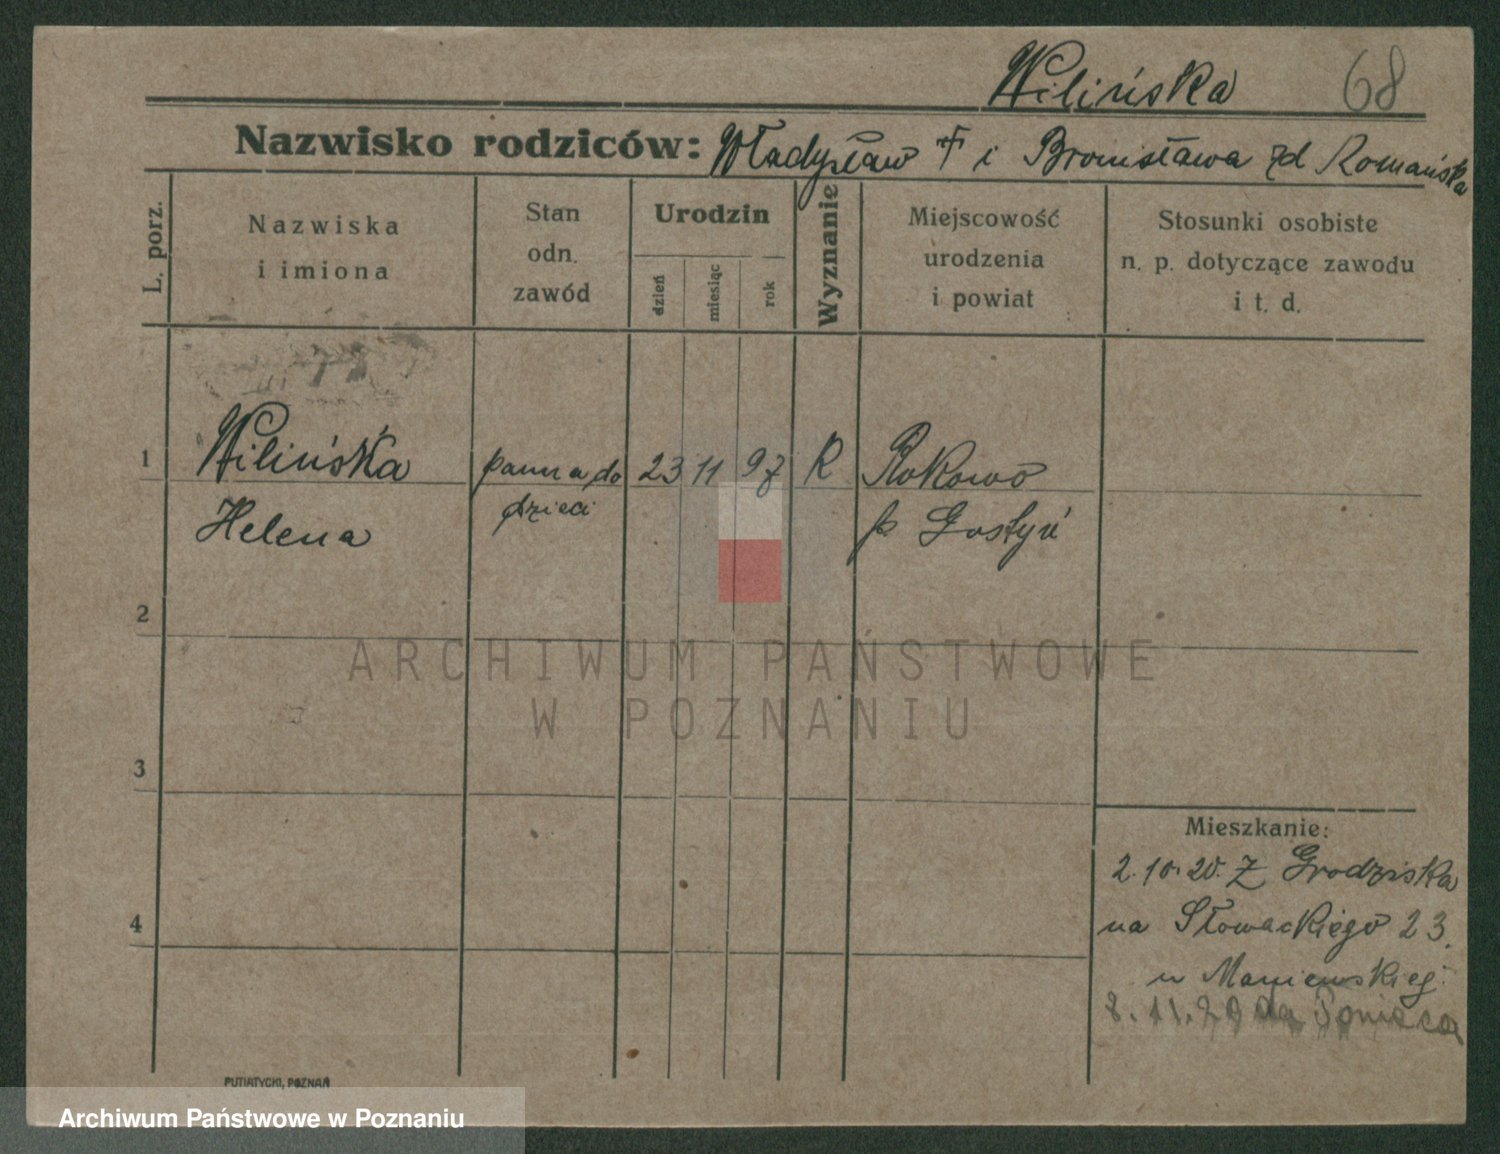 Wilińska 68
Nazwisko rodziców: Władysław † i Bronisława zd Romańska
L. porz.
Nazwiska
i imiona
Stan
odn.
zawód
Urodzin
dzień
miesiąc
rok
Wyznanie
Miejscowość
urodzenia
i powiat
Stosunki osobiste
n. p. dotyczące zawodu
i t. d.
1 Wilińska panna do 23 11 97 R Rokowo
Helena dzieci p Gostyń
2
3
4
Mieszkanie:
2.10.20. Z Grodziska
na Słowackiego 23.
u Maniewskieg.
8.11.20 do Ponieca
PUTIATYCKI, POZNAŃ
ARCHIWUM PAŃSTWOWE
W POZNANIU
Archiwum Państwowe w Poznaniu